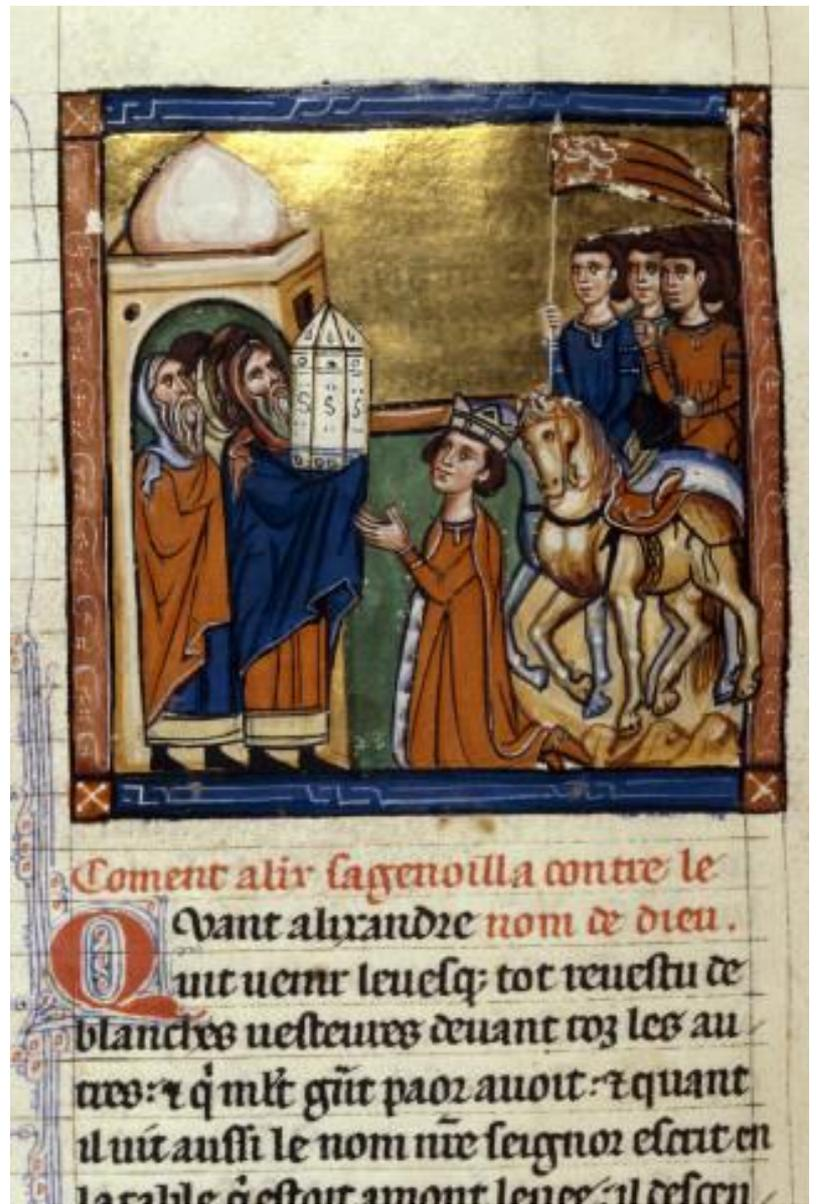 Coment alix sagenoilla contre le
Quant alixandre nom de dieu.
uit uenir leuesq; tot reuestu de
blanches uesteures deuant toz les au
tres: ⁊ q̇ mlt̄ gñt paor auoit: ⁊ quant
il uit aussi le nom nr̄e seignor escrit en
la table q̇ estoit amont leuee: il descen